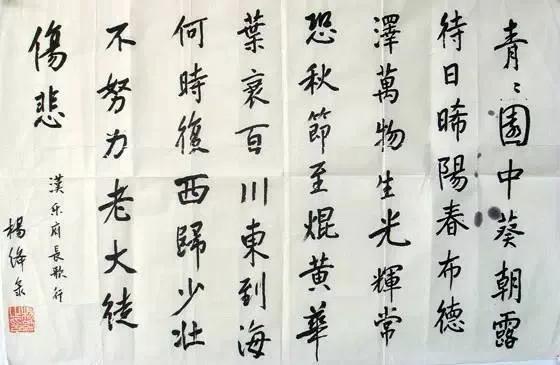 青〻園中葵朝露
待日晞陽春布德
澤萬物生光輝常
恐秋節至焜黄華
葉衰百川東到海
何時復西歸少壯
不努力老大徒
傷悲
漢乐府長歌行
楊絳录